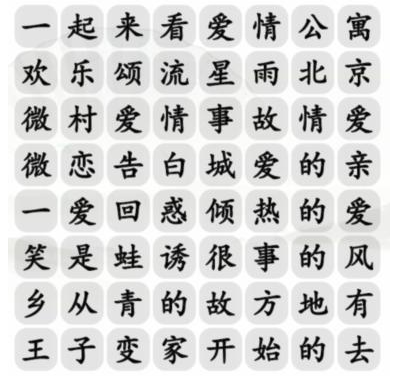 一起来看爱情公寓
欢乐颂流星雨北京
微村爱情事故情爱
微恋告白城爱的亲
一爱回惑倾热的爱
笑是蛙诱很事的风
乡从青的故方地有
王子变家开始的去